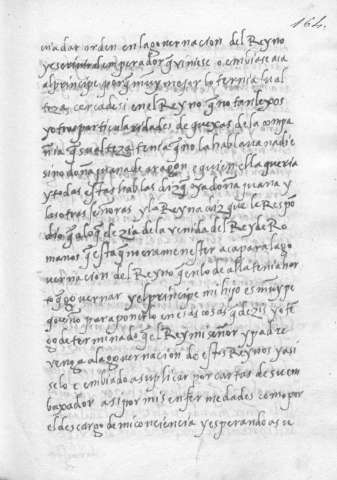 164.
viadar orden en la governacion del Reyno
y escrivir al emperador q̃ viniese o embiase aca
al principe porq̃ muy mejor lo ternia su al
teza cerca de si en el Reyno q̃ no tan lexos
y otras particularidades de quexas de la compa
ñia q̃ su alteza tenia q̃ no la hablava nadie
sino doña juana de aragon e quien ella queria
y todas estas hablas diz q̃ oya doña juana y
las otras señoras y la Reyna diz que le Respon
dio q̃ a lo q̃ dezia de la venida del Rey de Ro
manos q̃ esta no era menester aca para la go
vernacion del Reyno q̃ en lo de alla tenia har
to q̃ governar y el principe mi hijo es muy pe
queño para ponerlo en esas cosas q̃ dezis yo te
go determinado q̃ el Rey mi señor y padre
venga a la governacion de estos Reynos y asi
se lo e embiado a suplicar por cartas de su em
baxador asi por mis enfermedades como por
el descargo de mi conciencia y esperando a su